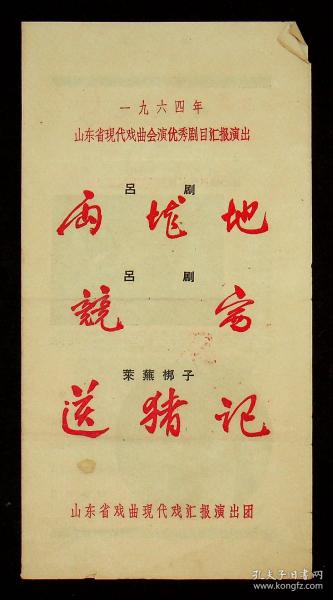 一九六四年
山东省现代戏曲会演优秀剧目汇报演出
呂剧
两垅地
呂剧
競赛
萊蕪梆子
送猪记
山东省戏曲现代戏汇报演出团
孔夫子旧书网
www.kongfz.com